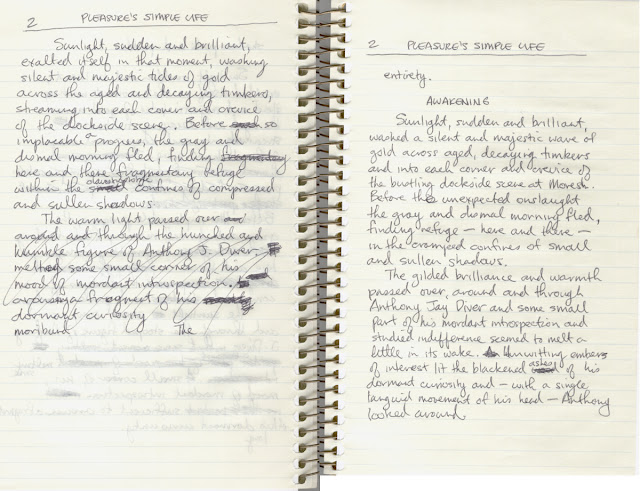 2 PLEASURE'S SIMPLE LIFE
Sunlight, sudden and brilliant,
exalted itself in that moment, washing
silent and majestic tides of gold
across the aged and decaying timbers,
streaming into each corner and crevice
of the dockside scene. Before such so
implacable a progress, the gray and
dismal morning fled, finding fragmentary
here and there fragmentary refuge
within the small confines of compressed
and sullen shadows
The warm light passed over and
around and through the hunched and
figure of Anthony J. Diver. It
melted some small corner of his
mood of mordant introspection.
a fragment of his
dormant curiosity
moribund The
2 PLEASURE'S SIMPLE LIFE
entirety.
AWAKENING
Sunlight, sudden and brilliant,
washed a silent and majestic wave of
gold across aged, decaying timbers
and into each corner and crevice of
the bustling dockside scene at Moresh.
Before the unexpected onslaught
the gray and dismal morning fled,
finding refuge — here and there —
in the cramped confines of small
and sullen shadows.
The gilded brilliance and warmth
passed over, around and through
Anthony Jay Diver and some small
part of his mordant introspection and
studied indifference seemed to melt a
little in its wake. Unwitting embers
of interest lit the blackened ashes of his
dormant curiosity and — with a single,
languid movement of his head — Anthony
looked around.